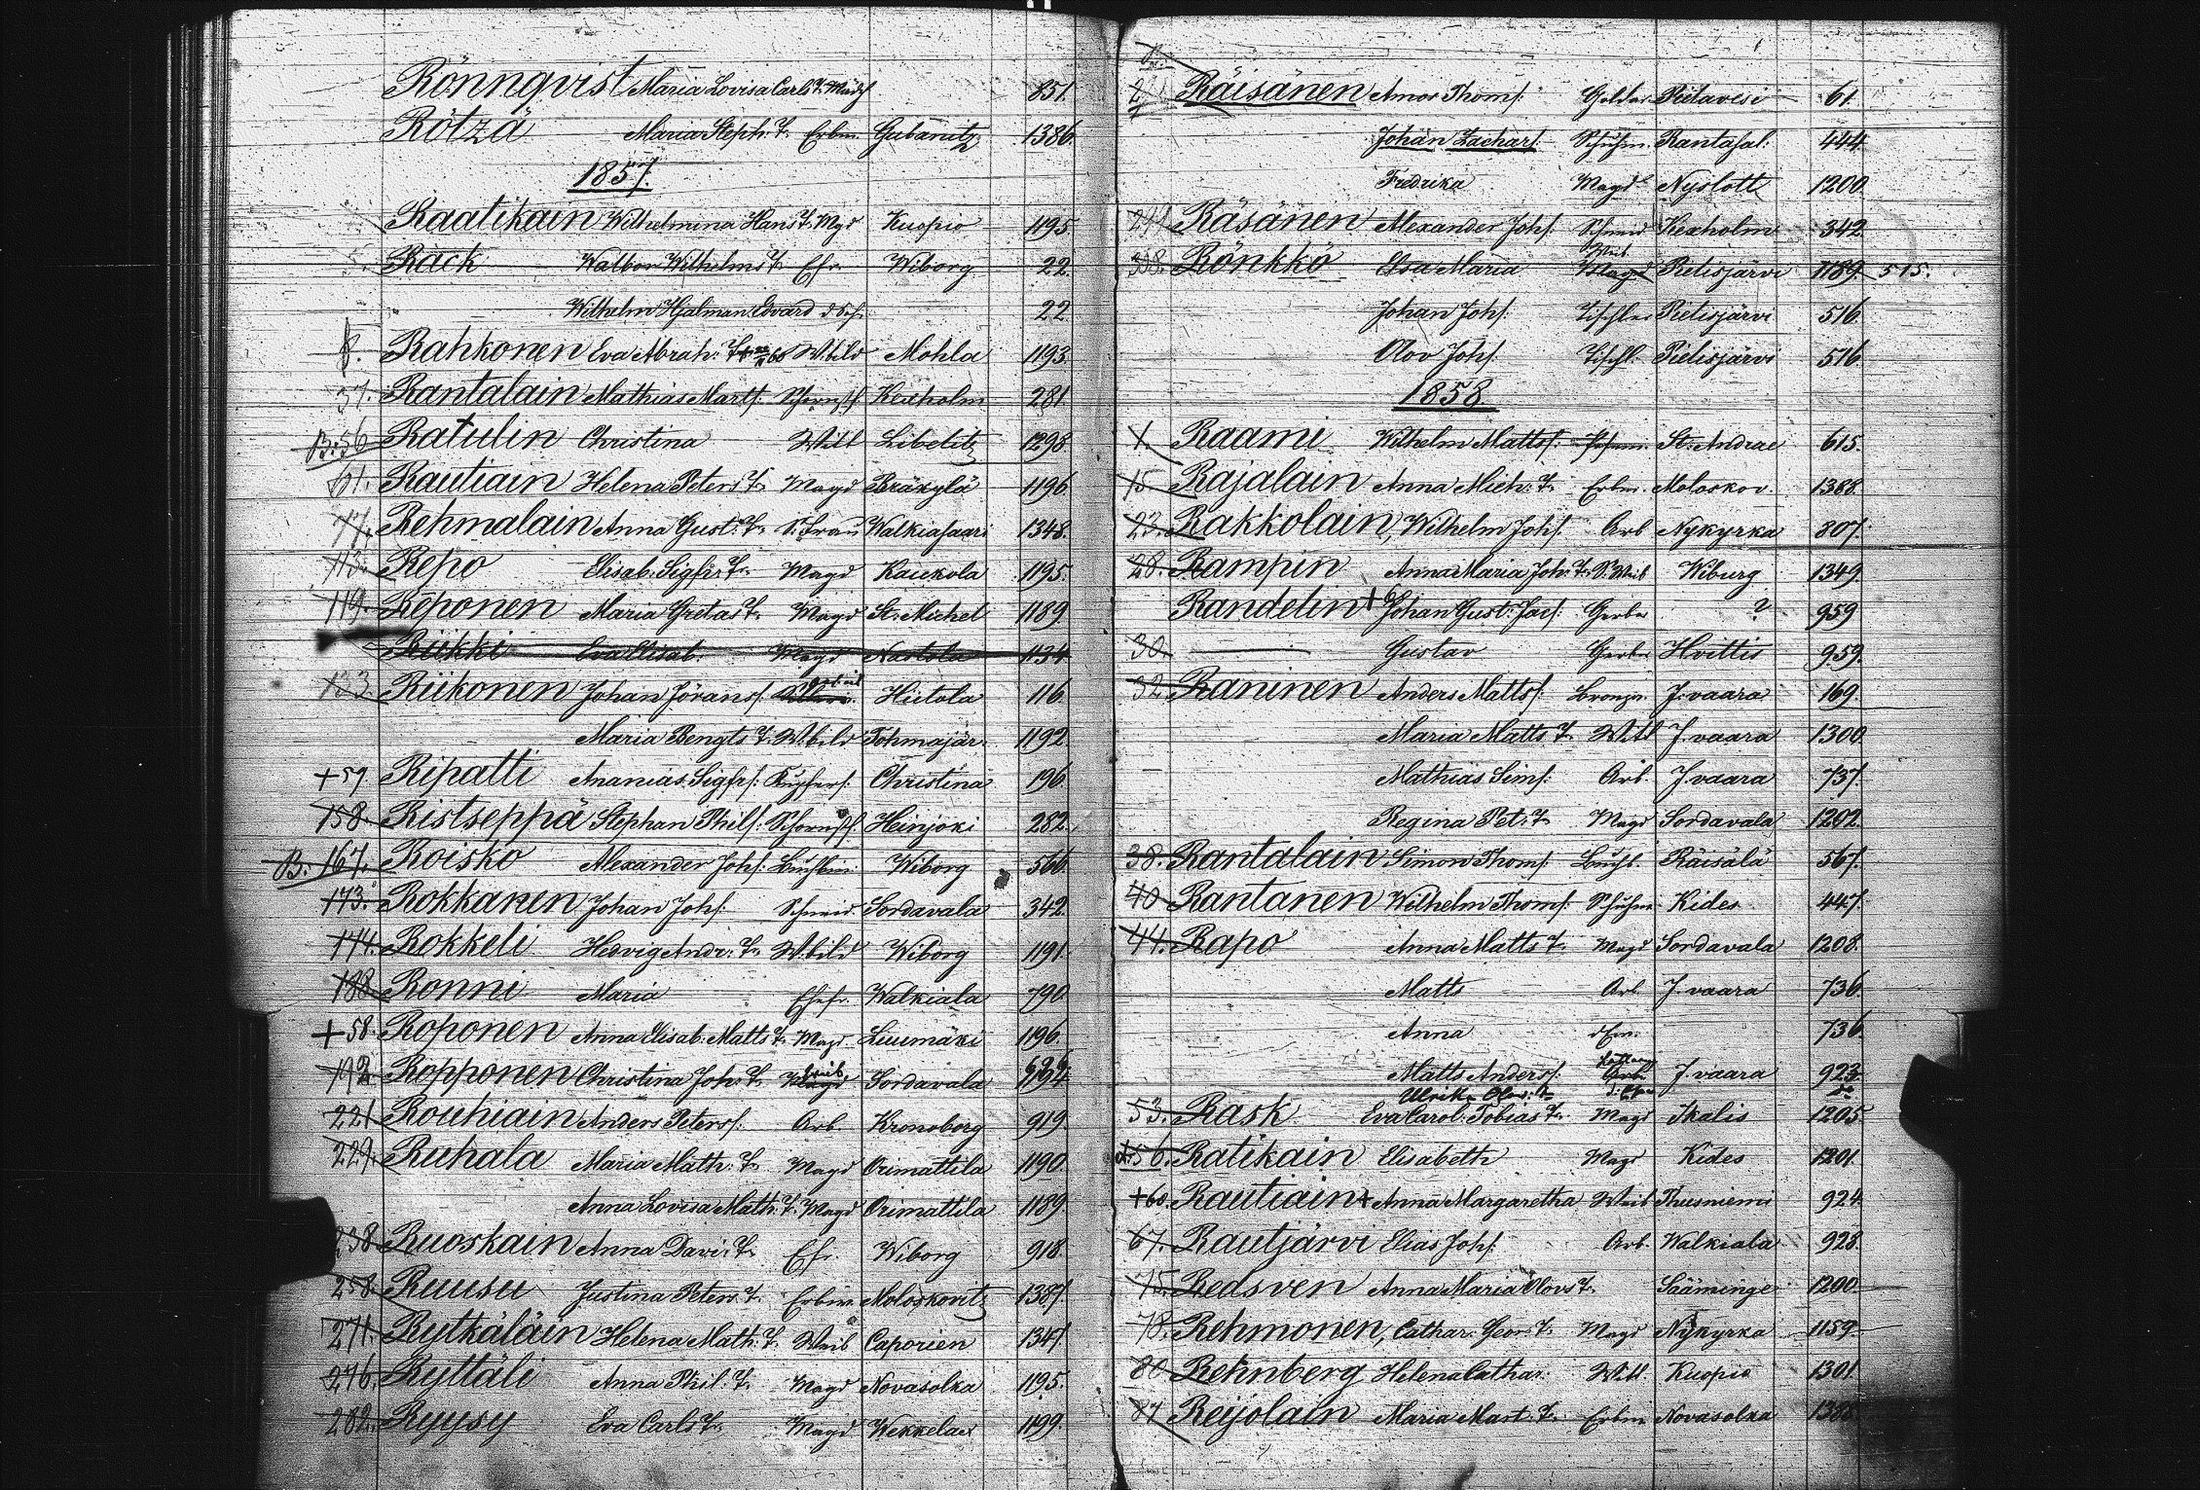 Rönnqvist Maria Lovisa Carls T. Mädch 851.
Rötzä Maria Steph: T. Erbm. Gubanitz 1386.
1857.
Raatikain Wilhelmina Hans T. Mgd Kuopio 1195
Rack Walbor Wilhelms T. Efr. Wiborg 22.
Wilhelm Hjalmar Edvard d Sch. 22
8. Rahkonen Eva Abrah: T. W.bild Mohla 1193.
37. Rantalain Mathias Marts: Schornstf Kexholm 281
B. 56 Ratulin Christina Witt Libelitz 1298.
61. Rautiain Helena Peters T. Magd Bräkylä 1196
77. Rehmalain Anna Gust: T. S. Frau Walkiasaari 1348.
113. Repo Elisab. Sigfr: T. Magd Kaukola 1195.
119. Reponen Maria Gretas T. Magd St. Michel 1189
Riikki Eva Elisab. Magd Nastola 1134
133. Riikonen Johan Jörans/. Hiitola 116.
Maria Bengts T. W.bild Tohmajär. 1192.
+57. Ripatti Ananias Sigfr/: Kupfers/: Christina 196.
158. Ristseppä Stephan Phils/: Schornstf. Heinjoki 282.
B. 167. Roisko Alexander Joh/: Buchbin: Wiborg 566.
173. Rokkanen Johan Joh/. Schneid. Sordavala 342.
174. Rokkeli Hedvig Andr: T. W.bild Wiborg 1191.
188. Ronni Maria Ehefr. Walkiala 790
+58. Roponen Anna Elisab: Matts T. Magd Luumäki 1196.
192. Ropponen Christina Joh: T. Magd Weib Sordavala 1194
221. Rouhiain Anders Peters/. Arb. Kronoborg 919.
229. Ruhala Maria Math: T. Magd Orimattila 1190
Anna Lovisa Math: T. Magd Orimattila 1189.
238. Ruoskain Anna Davi: T. Efr. Wiborg 918.
258. Ruusu Justina Peters T. Erbm. Moloskovitz 1387.
271. Rytkäläin Helena Math: T. Weib Caporien 1347.
276. Ryttäli Anna Phil: T. Magd Novasolka 1195.
282. Ryysy Eva Carls T. Magd Wekkelax 1199.
Räisänen Amos Thom/: Goldar. Pielavesi 61.
Johan Zachar/. Schuhm. Rantasal: 444.
Fredrika Magd Nyslott 1200.
291. Räsänen Alexander Joh/. Schmid Kexholm 342
308. Rönkkö Elsa Maria Magd Weib Pielisjärvi 1189. 515.
Johan Joh/. Tischler Pielisjärvi 516.
Olov Joh/. Tischl. Pielisjärvi 516.
1858.
1. Raami Wilhelm Matts/: St. Andrae 615.
15. Rajalain Anna Mich: T. Erbm. Moloskov. 1388.
23. Rakkolain, Wilhelm Joh/. Arb Nykyrka 807.
28. Rampin Anna Maria Joh: T. S. Weib Wiburg 1349.
Randelin + Johan Gust: Jac/. Gerber ? 959
30. —— Gustav Gerbr Hvittis 959.
32. Raninen Anders Matts/: Bronzn. J.vaara 169.
Maria Matts T. Witt J.vaara 1300.
Mathias Sim/: Arb. J.vaara 737.
Regina Pet: T. Magd Sordavala 1202.
38. Rantalain Simon Thom/. Buchb. Räisälä 567.
40 Rantanen Wilhelm Thom/. Schuhm. Kides 447.
44. Rapo Anna Matts T. Magd Sordavala 1208.
Matts Arb. J.vaara 736.
Anna d Em: 736.
Matts Anders/: Arb. J.vaara 923.
Ulrika Olov: T.
53. Rask Eva Carol. Tobias T. Magd Ikalis 1205.
56. Ratikain Elisabeth Magd Kides 1201.
+60. Rautiain + Anna Margaretha Weib Thusniemi 924
67. Rautjärvi Elias Joh/. Arb. Walkiala 928.
75. Redsven Anna Maria Olovs T. Sääminge 1200.
78. Rehmonen, Cathar. Geor: T. Magd Nykyrka 1159.
80. Rehnberg Helena Cathar: Witt Kuopio 1301.
87 Reijolain Maria Mart: T. Erbm Novasolka 1388.